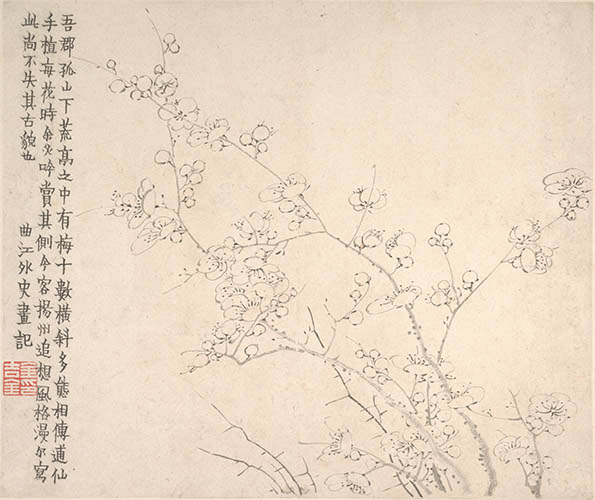 吾郡孤山下荒亭之中有梅十數橫斜多態相傳逋仙
手植每花時余必吟賞其側今客揚州追想風格漫尔寫
此尚不失其古貌也　曲江外史畫記
金吉金印